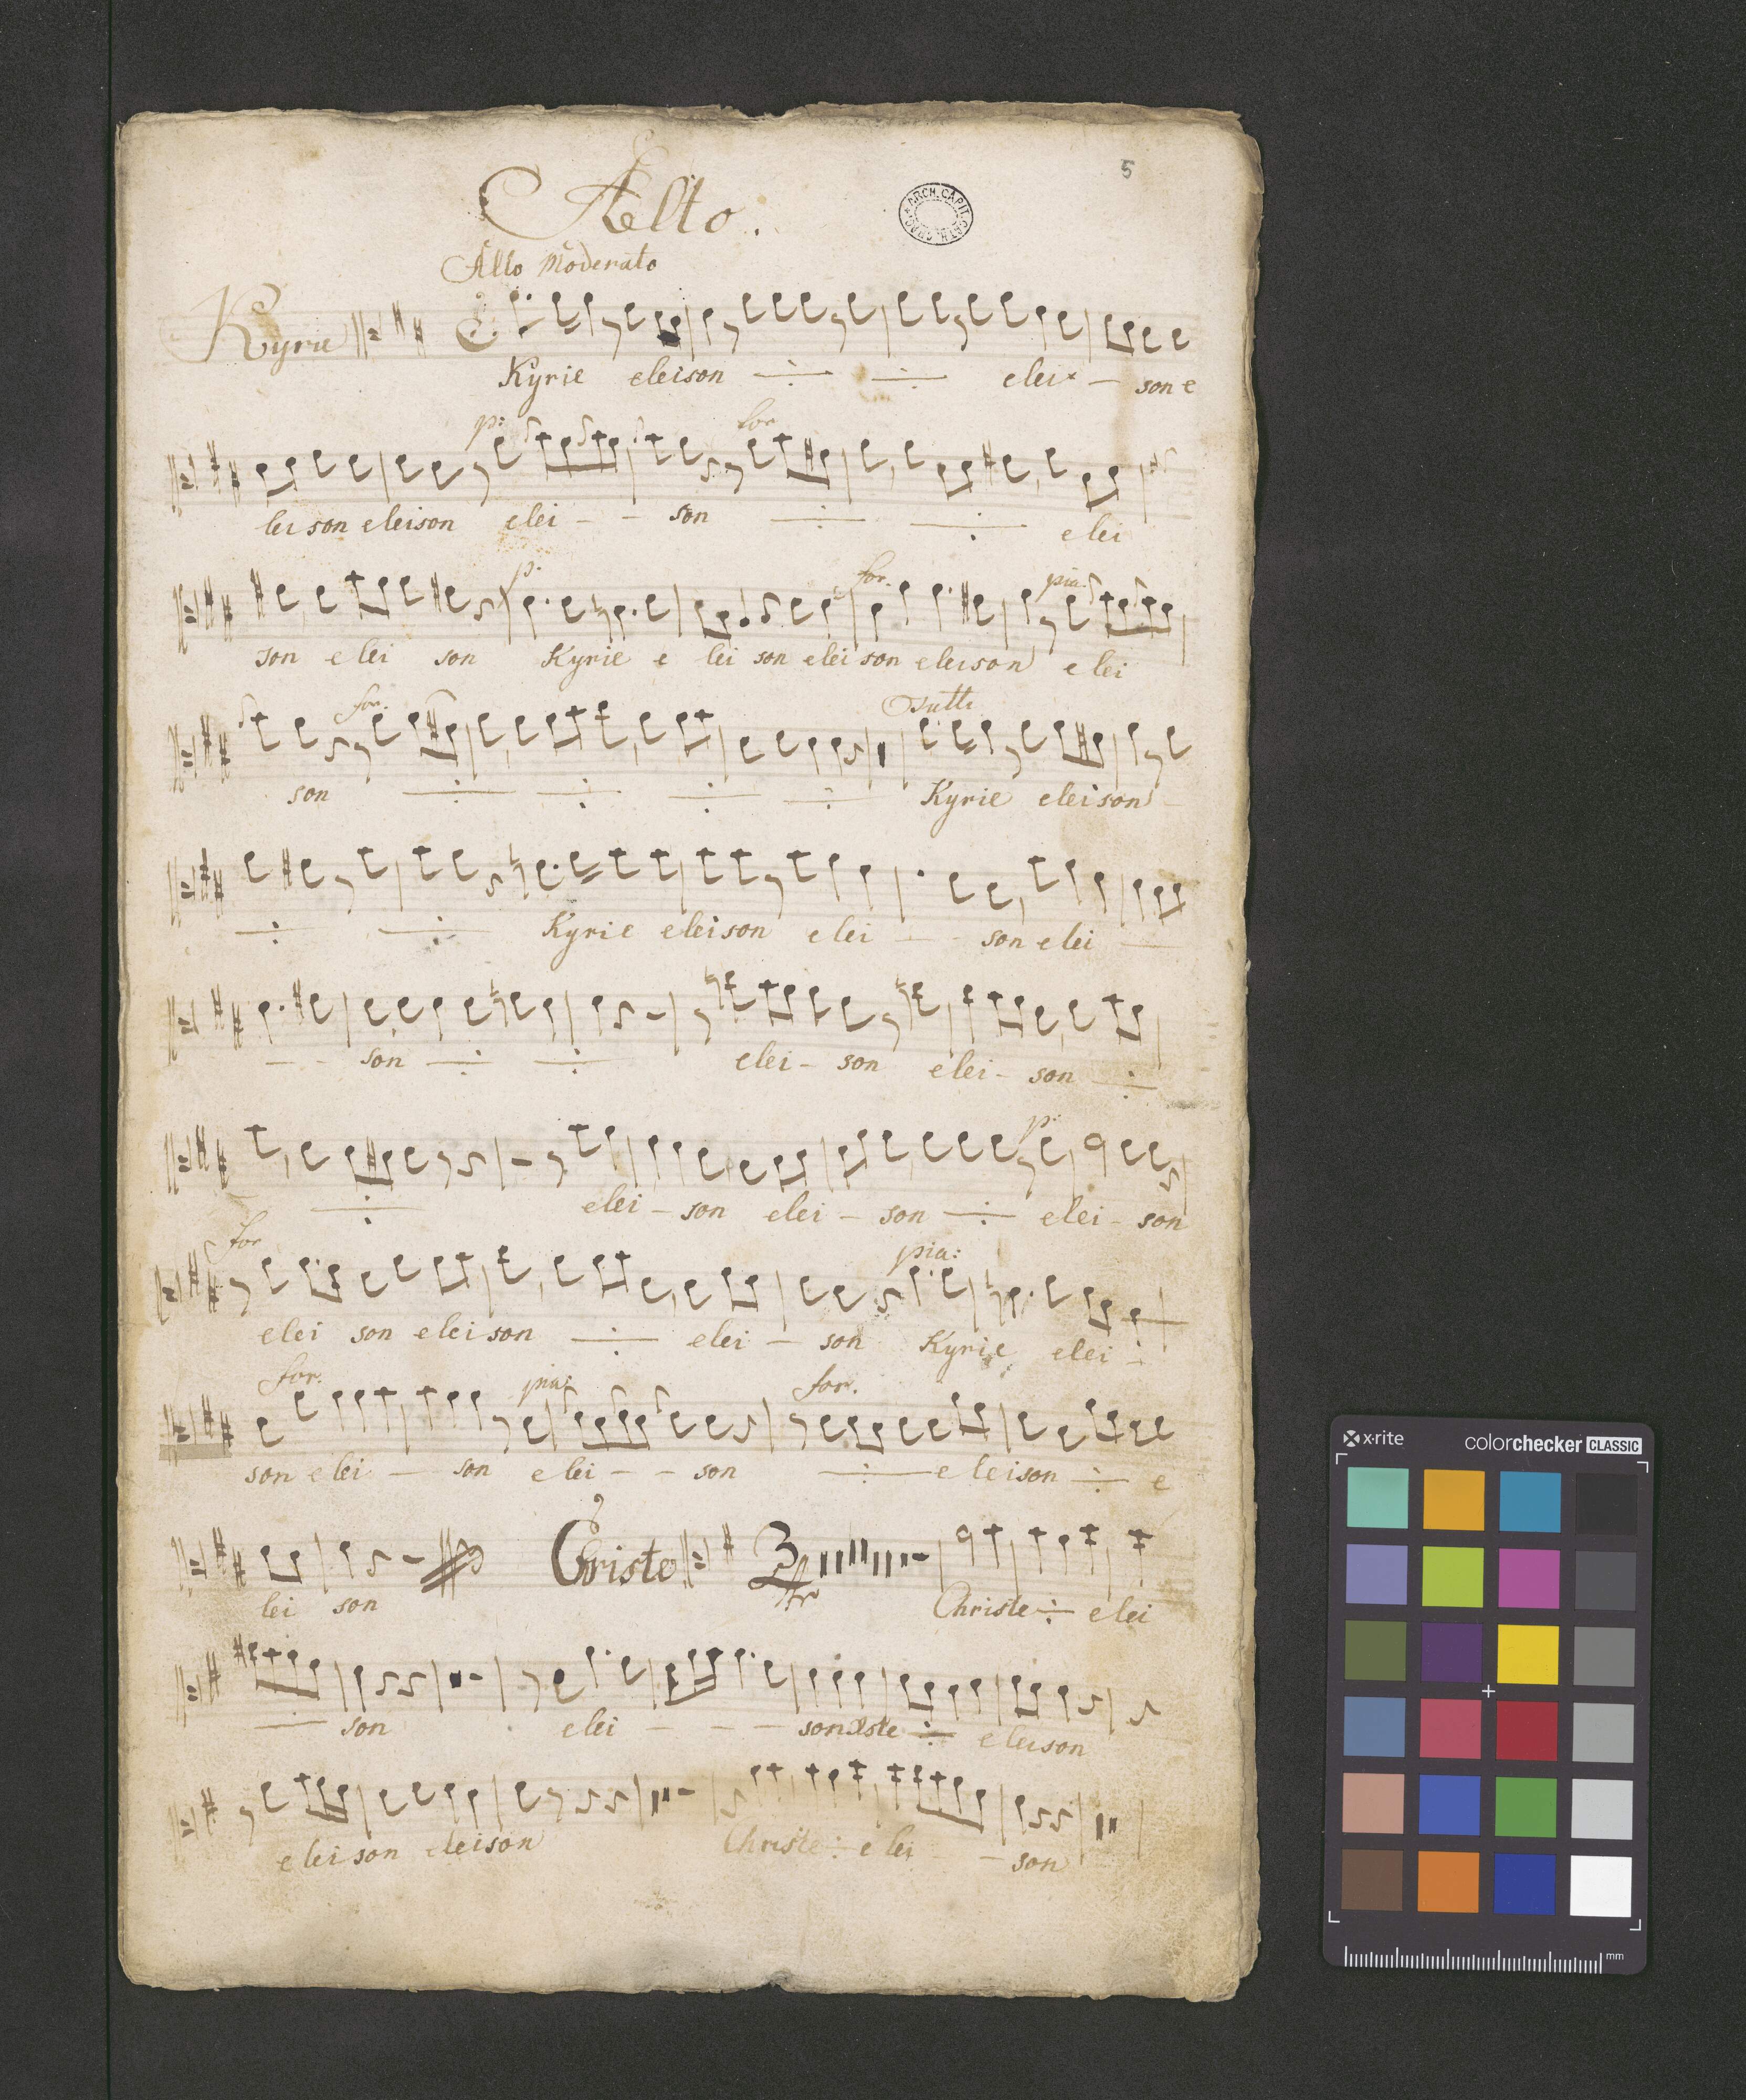 5
Alto.
ARCH. CAPIT. CATH. CRAC.
Allo Moderato
Kyrie
Kyrie eleison elei - son e
p: for
lei son eleison elei - - son elei
p: for. pia:
son elei son Kyrie e lei son elei son eleison elei
for. Tutti
son Kyrie eleison
Kyrie eleison elei - - son elei -
- - son elei - son elei - son
p:
elei - son elei - son elei - son
for pia:
elei son eleison elei - son Kyrie elei
for. pia: for.
son elei - son elei - - son eleison e
Christe 3/4
lei son Christe elei
son elei - - - son Xste eleison
eleison eleison Christe elei - - son
x-rite colorchecker CLASSIC
mm